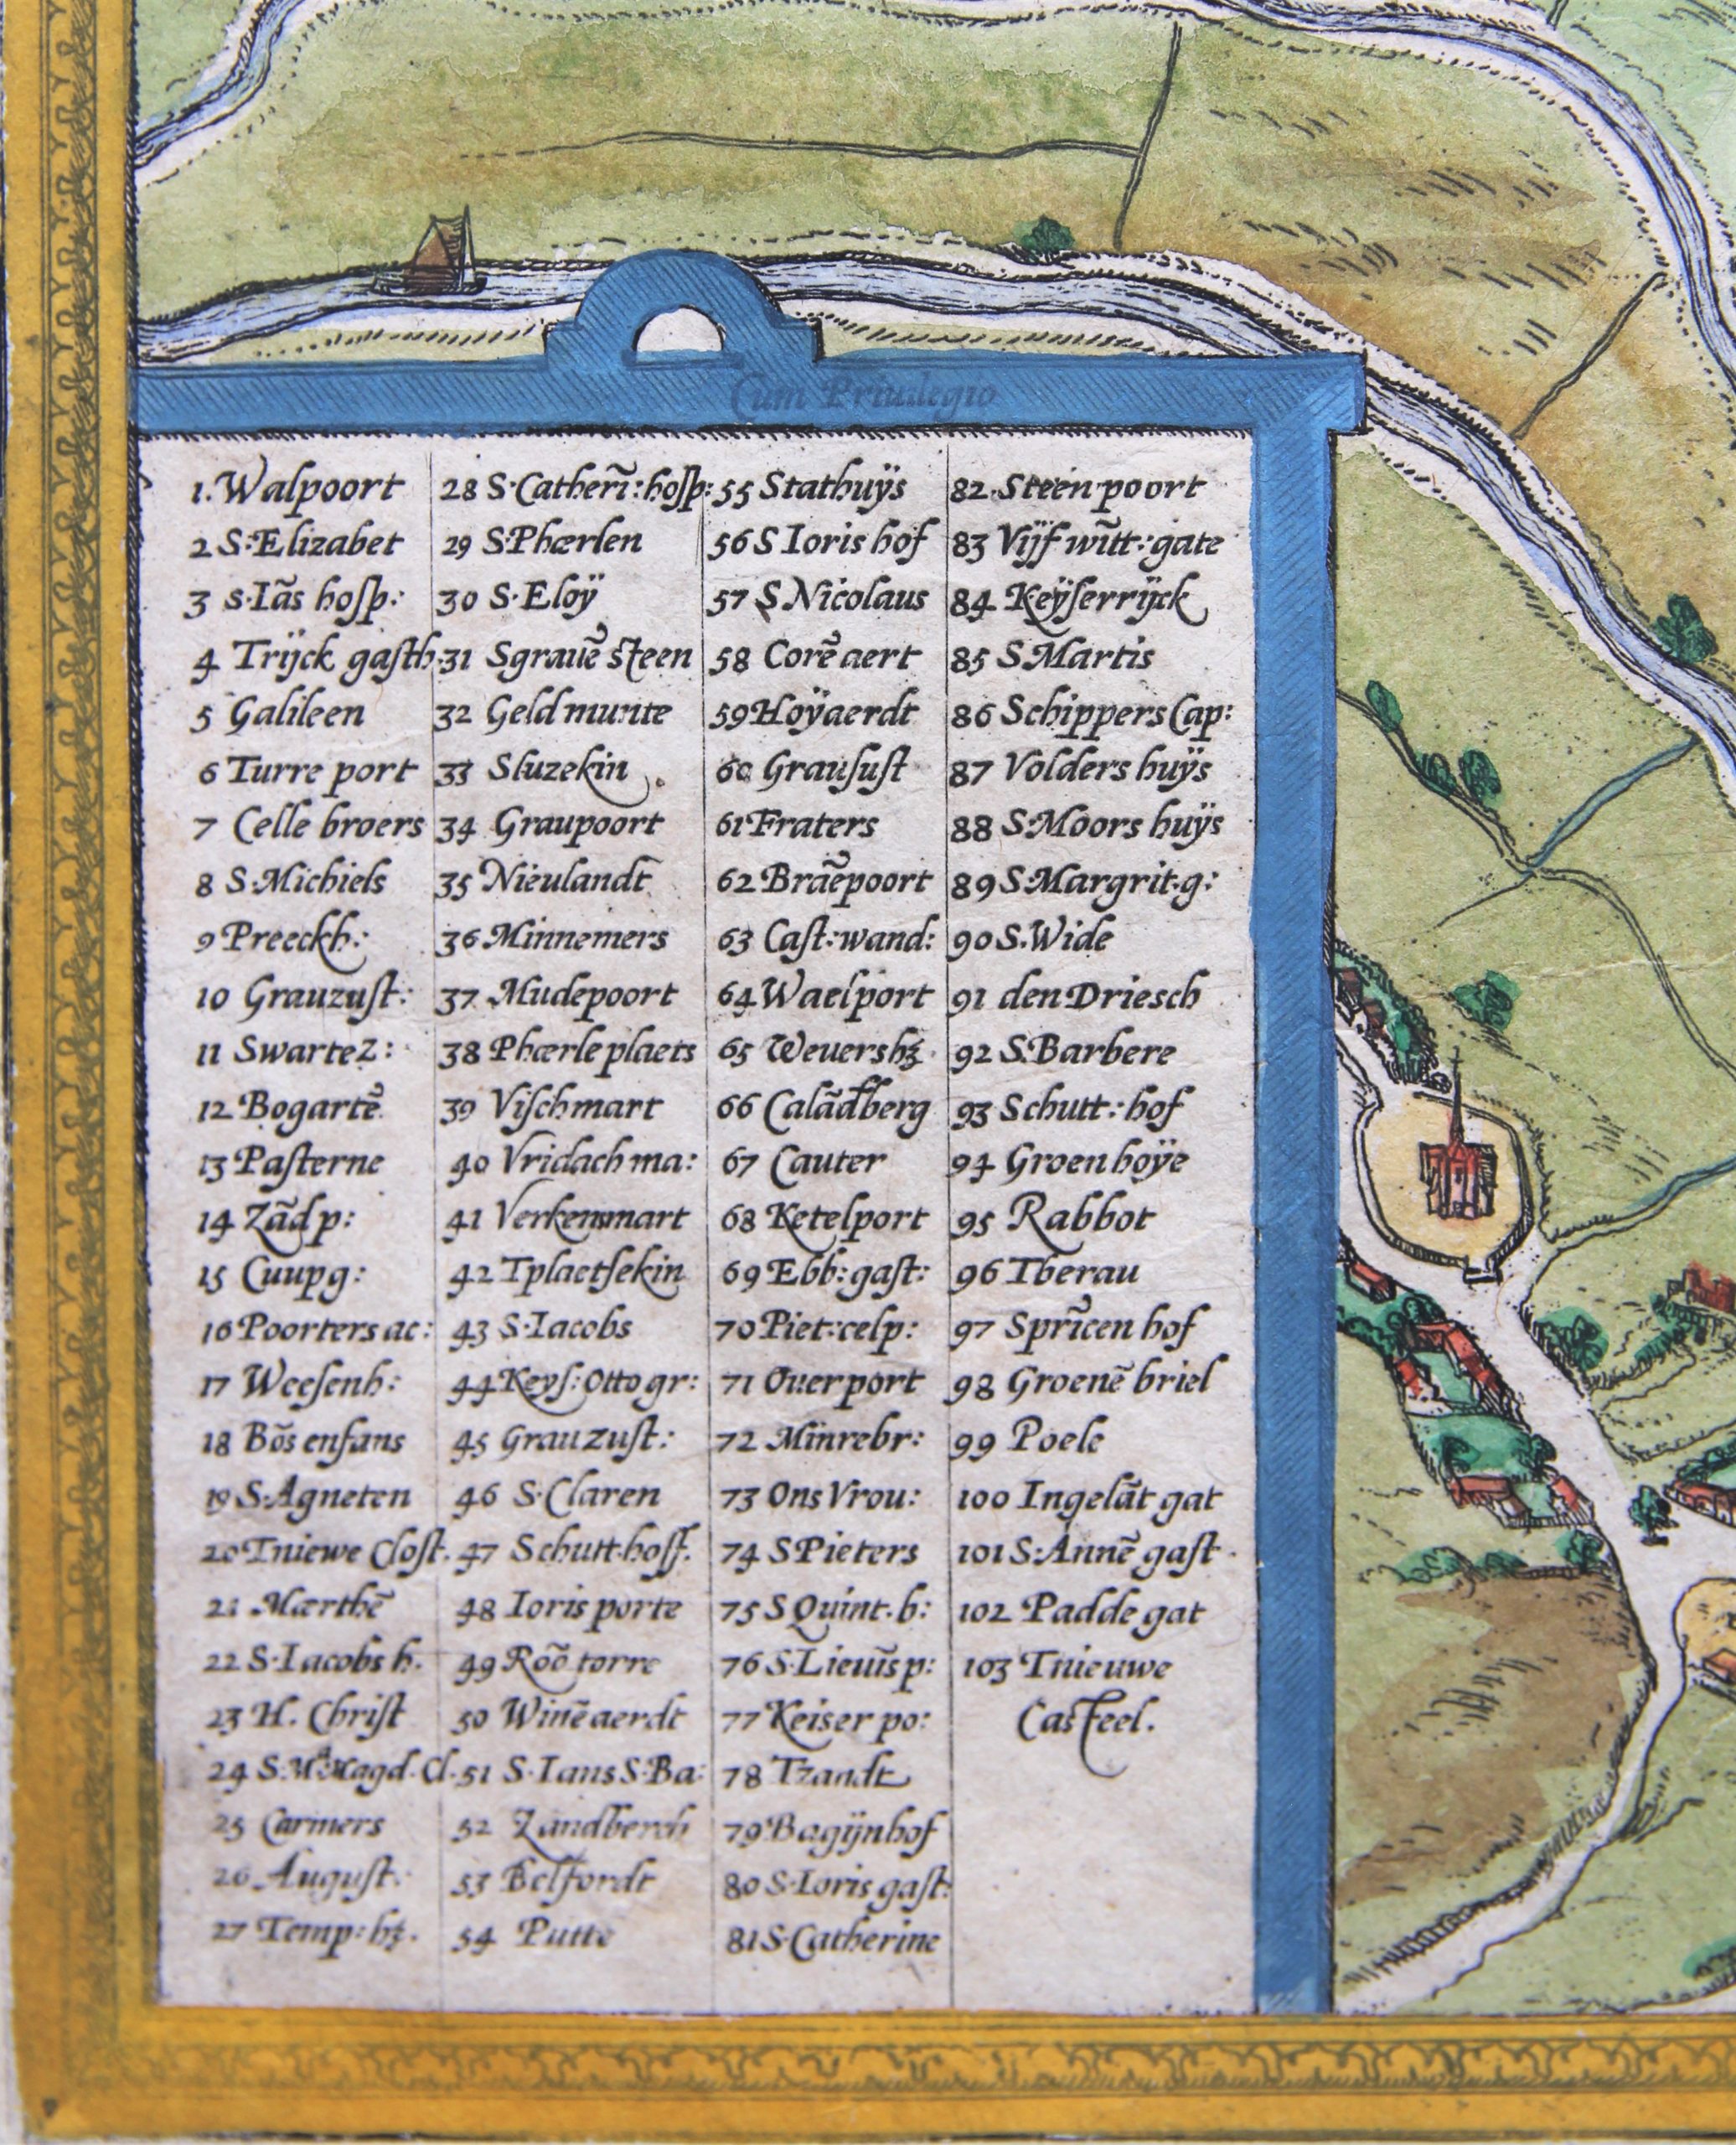 Cum Priuilegio
1. Walpoort
2 S: Elizabet
3 s. Iãs hoſp:
4 Trijck gaſth:
5 Galileen
6 Turre port
7 Celle broers
8 S. Michiels
9 Preeckh:
10 Grauzuſt:
11 Swarte Z:
12 Bogartẽ
13 Paſterne
14 Zãd p:
15 Cuup g:
16 Poorters ac:
17 Weeſenh:
18 Bõs enfans
19 S. Agneten
20 Tniewe Cloſt.
21 Mærthẽ
22 S. Iacobs h.
23 H. Chriſt
24 S. Mᵃ Magd. Cl.
25 Carmers
26 Auguſt:
27 Temp: hʒ.
28 S. Catherĩ: hoſp:
29 S. Phærlen
30 S. Eloÿ
31 Sgrauẽ steen
32 Geld munte
33 Sluzekin
34 Graupoort
35 Nieulandt
36 Minnemers
37 Mudepoort
38 Phærle plaets
39 Viſchmart
40 Vridach ma:
41 Verkensmart
42 Tplaetſekin
43 S. Iacobs
44 Keyſ: Otto gr:
45 Grauzuſt:
46 S. Claren
47 Schutt. hoff.
48 Ioris porte
49 Roõ torre
50 Winẽ aerdt
51 S. Ians S. Ba:
52 Zandberch
53 Belfordt
54 Putte
55 Stathuÿs
56 S Ioris hof
57 S. Nicolaus
58 Corẽ aert
59 Hoÿaerdt
60 Grauſuſt
61 Fraters
62 Brãepoort
63 Caſt: wand:
64 Waelport
65 Weuershʒ.
66 Calãdberg
67 Cauter
68 Ketelport
69 Ebb: gaſt:
70 Piet: celp:
71 Ouerport
72 Minrebr:
73 Ons Vrou:
74 S Pieters
75 S Quint. b:
76 S. Lieuĩs p:
77 Keiser po:
78 Tzandt
79 Bagijnhof
80 S. Ioris gaſt:
81 S. Catherine
82. Steen poort
83 Vijf wĩtt: gate
84 Keÿſerrijck
85 S. Martis
86 Schippers Cap:
87 Volders huÿs
88 S. Moors huÿs
89 S. Margrit. g:
90 S. Wide
91 den Driesch
92 S. Barbere
93 Schutt: hof
94 Groen hoÿe
95 Rabbot
96 Tberau
97 Sprĩcen hof
98 Groenẽ briel
99 Poele
100 Ingelãt gat
101 S. Annẽ gaſt.
102 Padde gat
103 Tnieuwe
Casteel.